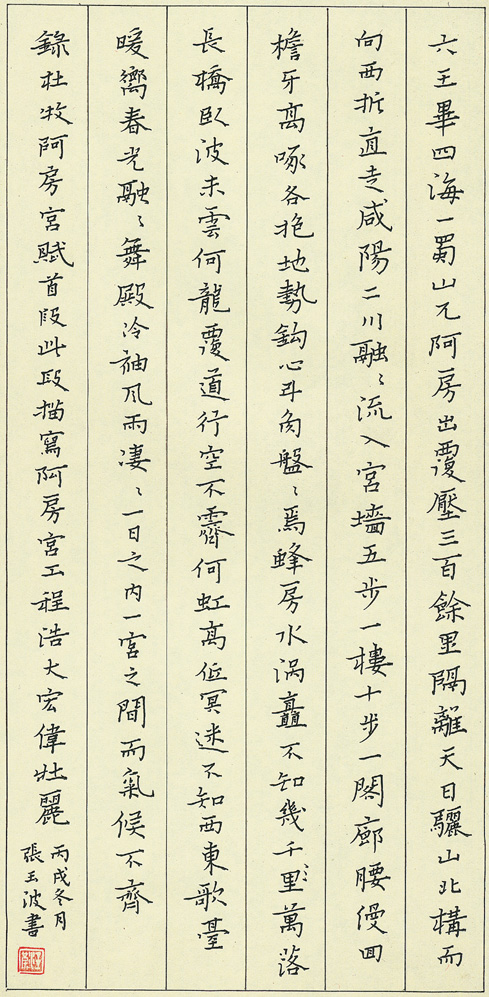 六王畢四海一蜀山兀阿房出覆壓三百餘里隔離天日驪山北構而
向西折直走咸陽二川融〻流入宮墻五步一樓十步一閣廊腰縵回
檐牙高啄各抱地勢鈎心斗角盤〻焉蜂房水渦矗不知幾千里萬落
長橋臥波未雲何龍覆道行空不霽何虹高低冥迷不知西東歌臺
暖嚮春光融〻舞殿冷袖風雨凄〻一日之内一宮之間而氣候不齊
錄杜牧阿房宮賦首段此段描寫阿房宮工程浩大宏偉壯麗
丙戌冬月
張玉波書